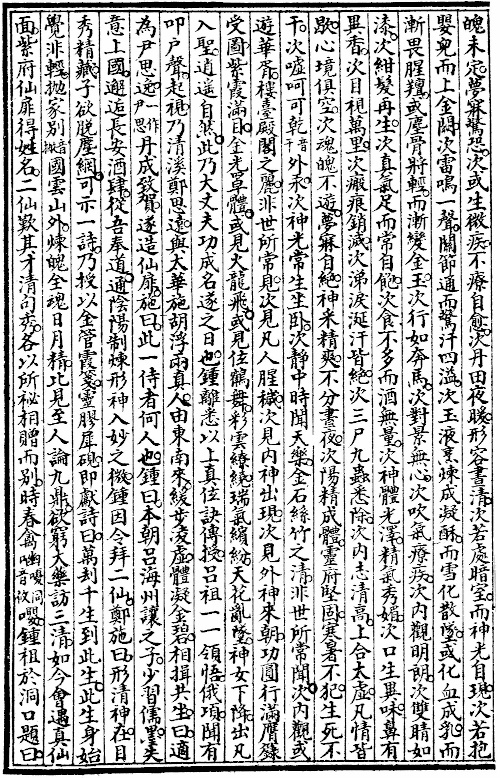 魄未定夢寐驚恐次或生微疾不療自愈次丹田夜暖形容晝清次若處暗室而神光自現次若抱
嬰兒而上金闕次雷鳴一聲關節通而驚汗四溢次玉液烹煉成凝酥而雪化散墜或化血成乳而
漸畏腥羶或塵骨將輕而漸變金玉次行如奔馬次對景無心次吹氣療疾次內觀明朗次雙睛如
漆次紺髮再生次真氣足而常自飽次食不多而酒無量次神體光澤精氣秀媚次口生異味鼻有
異香次目視萬里次瘢痕銷滅次涕淚涎汗皆絕次三尸九蟲悉除次內志清高上合太虛凡情皆
歇心境俱空次魂魄不遊夢寐自絕神采精爽不分晝夜次陽精成體靈府堅固寒暑不犯生死不
干次噓呵可乾音干外汞次神光常生坐臥次靜中時聞天樂金石絲竹之清非世所常聞次內觀或
遊華胥樓臺殿閣之麗非世所常見次見凡人腥穢次見內神出現次見外神來朝功圓行滿膺籙
受圖紫霞滿目金光罩體或見火龍飛或見住鶴舞彩雲繚繞瑞氣繽紛天花亂墜神女下降出凡
入聖逍遙自然此乃大丈夫功成名遂之日也鍾離悉以上真位訣傳授呂祖一一領悟俄頃聞有
叩戶聲起視乃清溪鄭思遠與太華施胡浮兩真人由東南來緩步凌虛體凝金碧相揖共坐曰適
為尹思逺尹一思作丹成致賀遂造仙扉施曰此一侍者何人也鍾曰本朝呂海州讓之子少習儒墨
意上國邂逅長安酒肆從吾奏道通陰陽制煉形神入妙之微鍾因令拜二仙鄭施曰形清神在目
秀精藏子欲脫塵網可示一詩乃授以金管霞箋靈膠犀硯即獻詩曰萬刦千生到此生此生身始
覺非輕拋家別國雲山外煉魄全魂日月精比見至人論九鼎欲窮大藥訪三清如今會遇真仙
面紫府仙扉得姓名二仙歎其才清句秀各以所祕相贈而別時春禽嚶鍾祖於洞口題曰